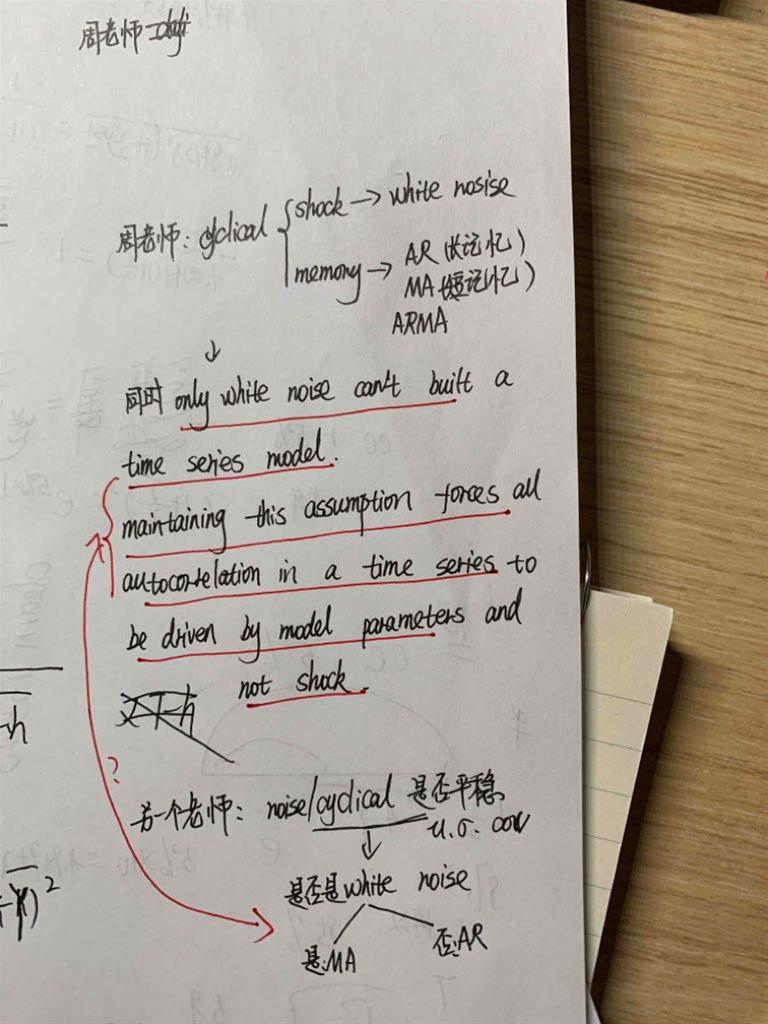 周老师
周老师: cyclical { shock → white nosise
memory → AR (长记忆)
MA (短记忆)
ARMA
↓
同时 only white noise can't built a
time series model.
maintaining this assumption forces all
autocorrelation in a time series to
be driven by model parameters and
not shock.
?
另一个老师: noise/cyclical 是否平稳
u. σ. cov
↓
是否是white noise
是:MA 否:AR
-h
)²